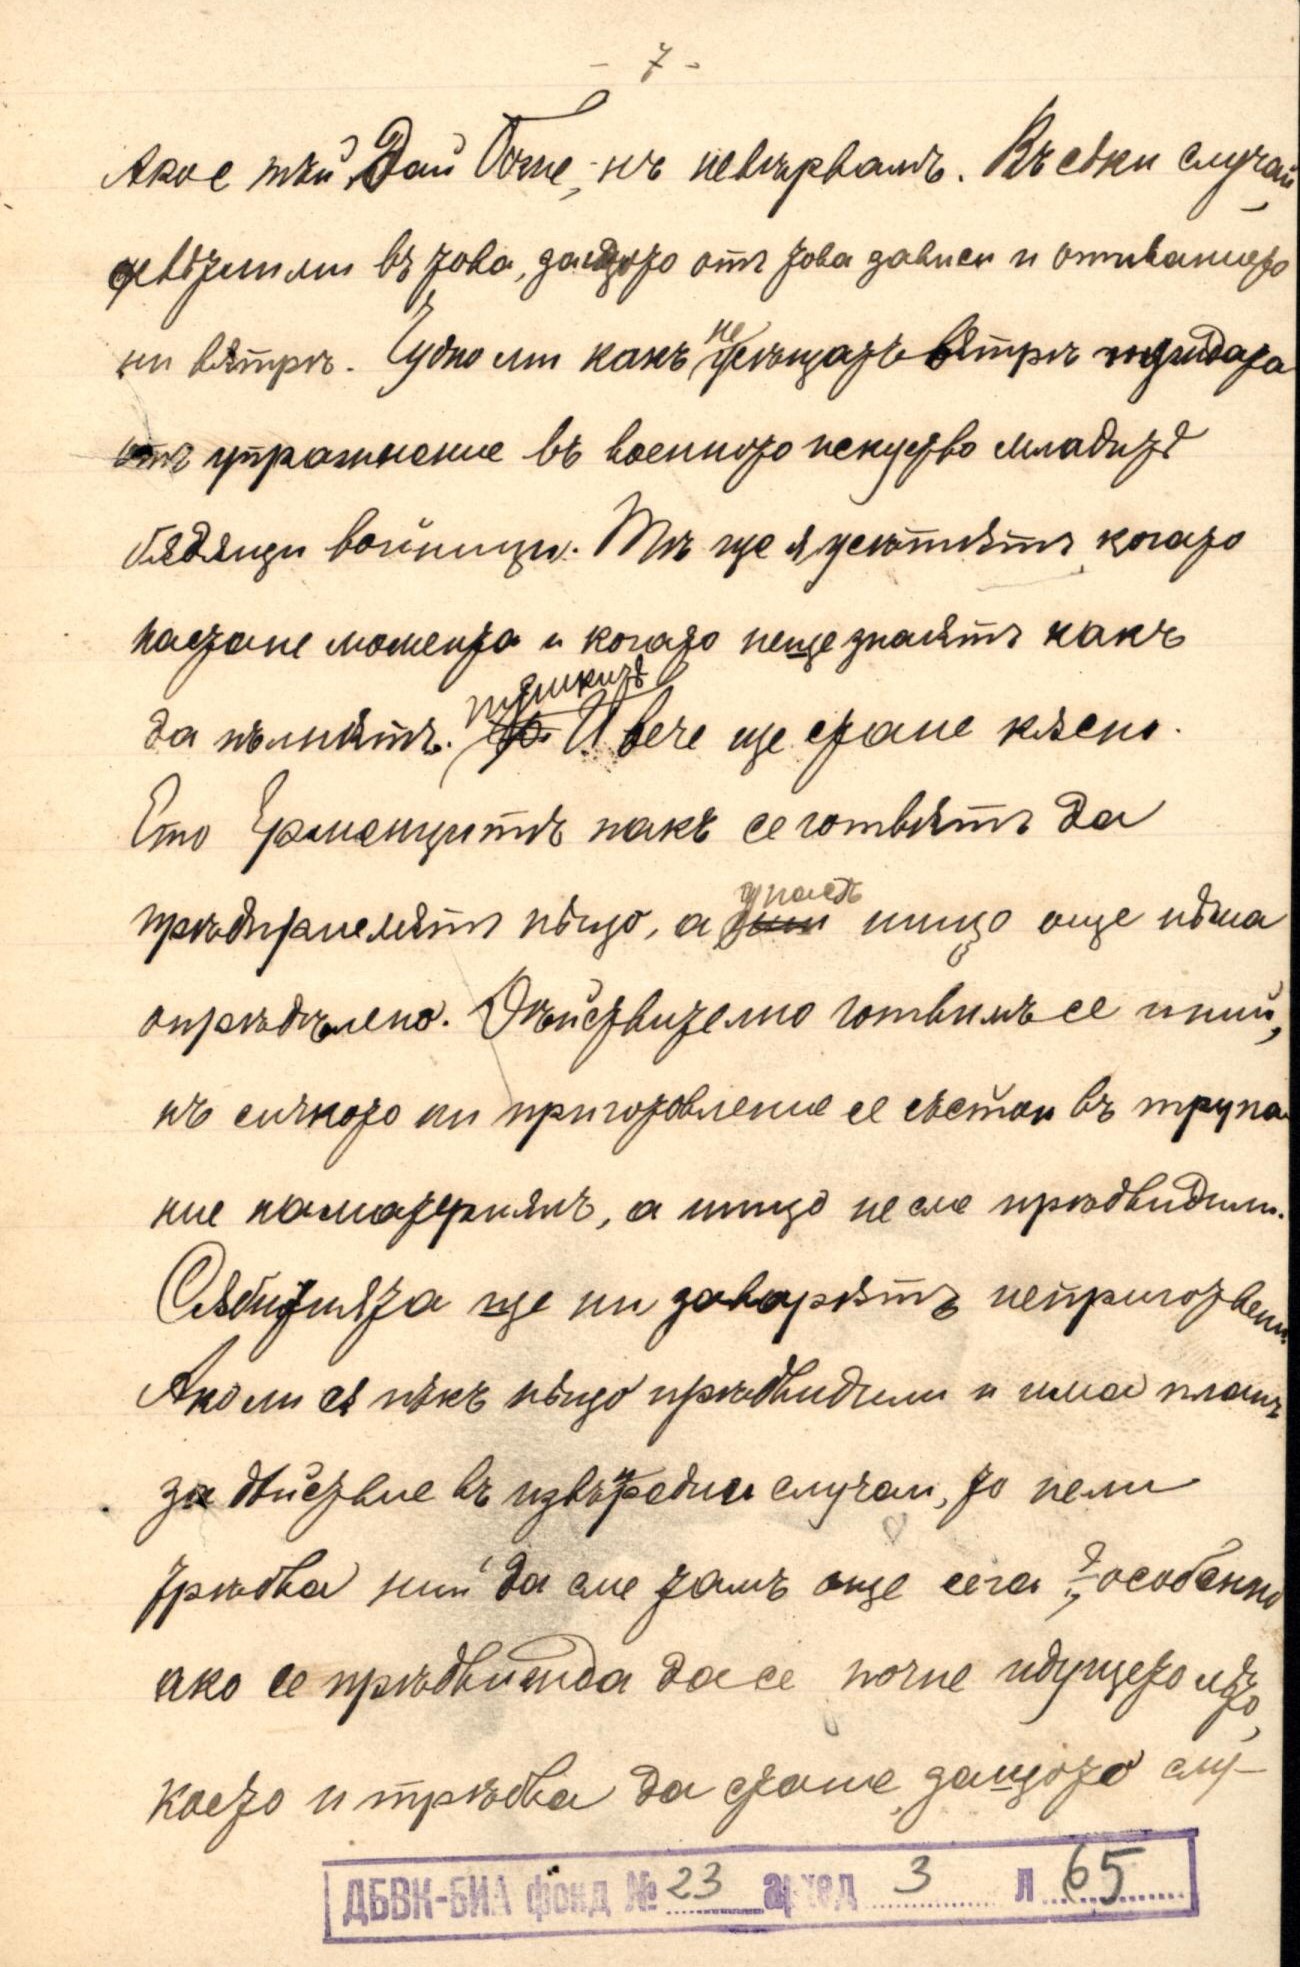 - 7 -
Ако е тъй, Дай Боже, - нъ невѣрвамъ. Въ сѣки случай
увѣдомили въ това, защото отъ това зависи и отиванието
ни вѫтрѣ. Чудно ми какъ не усѣщатъ вѫтрѣ нуждата
отъ упражнение въ военното искуство младитѣ
бѫдѫщи войници. Тѣ ще я усѣтятъ когато
настане момента и когато неще знаятъ какъ
да пълнятъ пушкитѣ. И вече ще стане кѫсно.
Ето Ерменцитѣ пакъ се готвятъ да
прѣдприематъ нѣщо, а у насъ нищо още нѣма
опрѣдѣлено. Дѣйствително готвимъ се и ний,
нъ сичкото ни приготовление се състои въ трупа-
ние на материялъ, а нищо не сме прѣдвидили.
Сѫбитията ще ни заварятъ неприготвени.
Ако ли сѫ пѫкъ нѣщо прѣдвидили и има планъ
за дѣйствие въ извънредни случаи, то нели
трѣбва ний да сме тамъ още сега?, особенно
ако се прѣдвижда да се почне идущето лѣто,
което и трѣбва да стане, защото слу-
ДБВК-БИА фонд № 23 архед 3 л 65